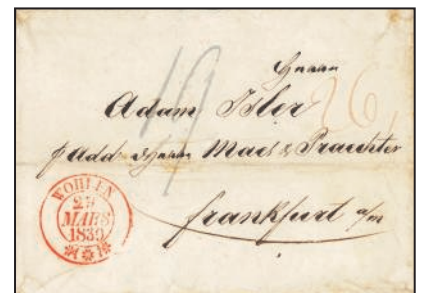 Herrn
Adam Isler
p Add Herrn Maes & Prauchter
frankfurt a/m
WOHLEN
29
MARS
1839